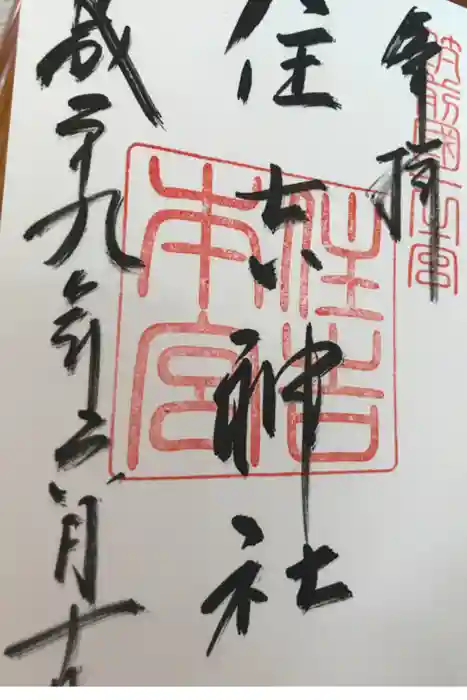 筑前國一之宮
奉拝
住吉神社
住吉
本宮
成二十九年六月十